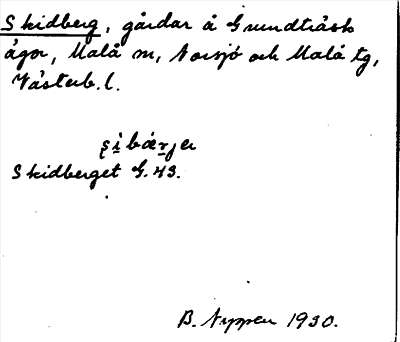 Skidberg, gårdar å Grundträsk
ägor, Malå sn, Norsjö och Malå tg,
Västerb. l.
Skidberget G. 43.
B. Nyppen 1930.